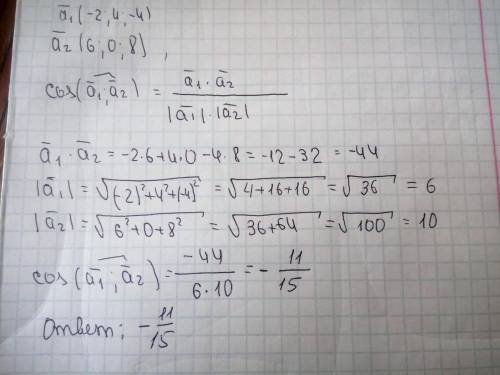 ā₁(-2; 4; -4)
ā₂(6; 0; 8),
cos(ā₁; ā₂) = ā₁ · ā₂ / |ā₁| · |ā₂|
ā₁ · ā₂ = -2·6+4·0-4·8 = -12-32 = -44
|ā₁| = √(-2)²+4²+(-4)² = √4+16+16 = √36 = 6
|ā₂| = √6²+0+8² = √36+64 = √100 = 10
cos(ā₁; ā₂) = -44 / 6·10 = - 11/15
Ответ: - 11/15